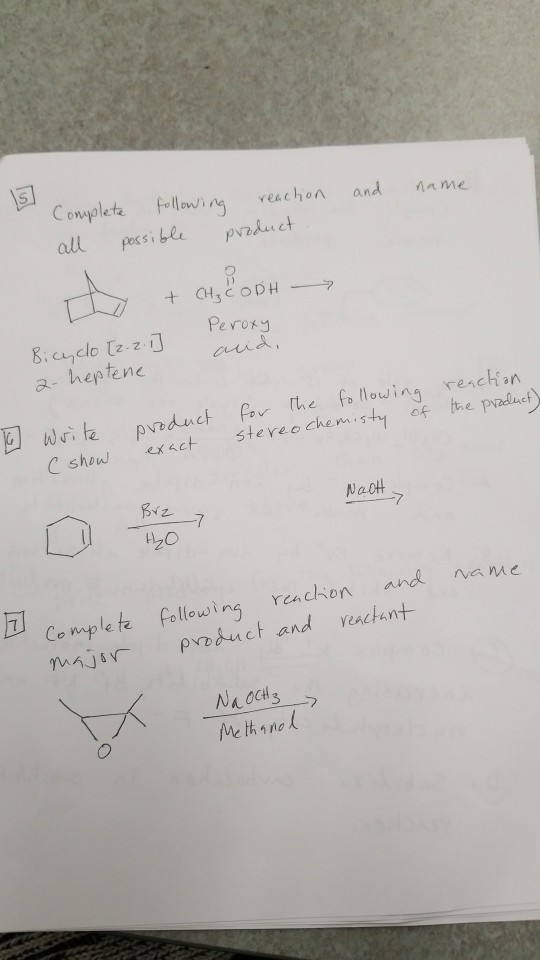 5 Complete following reaction and name
all possible product.
O
+ CH3 C OOH
Peroxy
acid.
Bicyclo [2.2.1]
2-heptene
6 Write product for the following reaction
(show exact stereochemisty of the product)
Br2
H2O
NaOH
7 Complete following reaction and name
major product and reactant
NaOCH3
Methanol
O